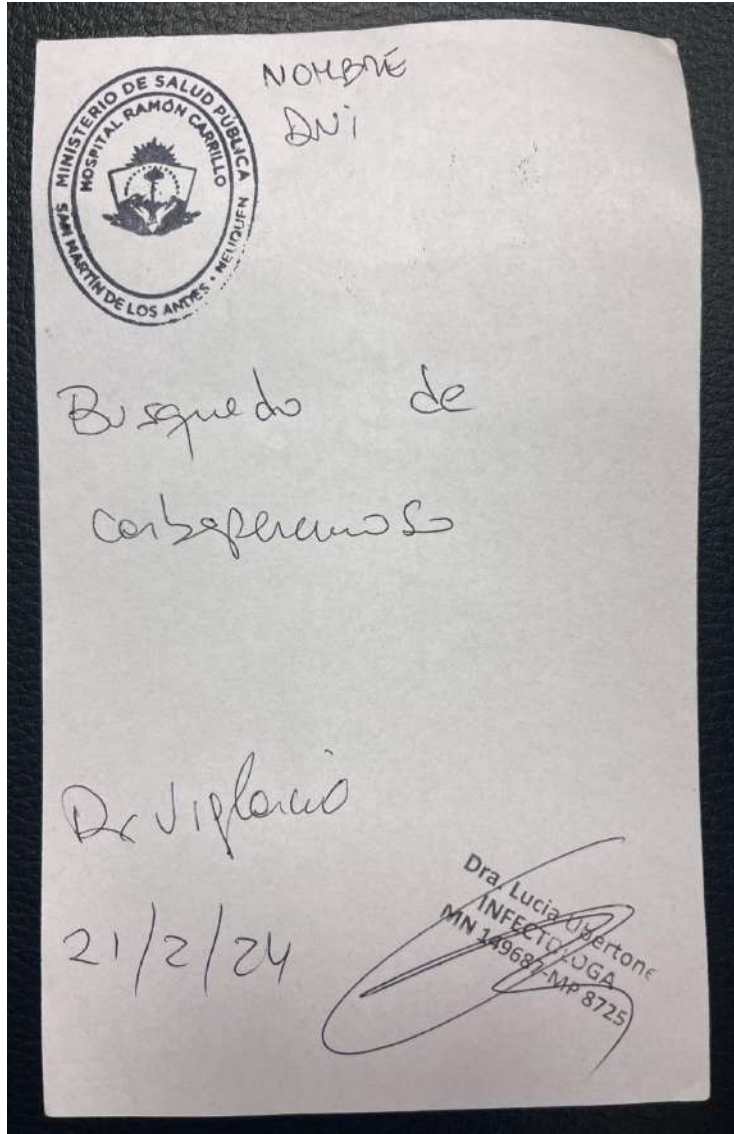 MINISTERIO DE SALUD PÚBLICA
HOSPITAL RAMÓN CARRILLO
SAN MARTÍN DE LOS ANDES · NEUQUEN
NOMBRE
DNi
Busqueda de
carbapenemasa
Dx Vigilancia
21/2/24
Dra. Lucia Libertone
INFECTOLOGA
MN 149687-MP 8725